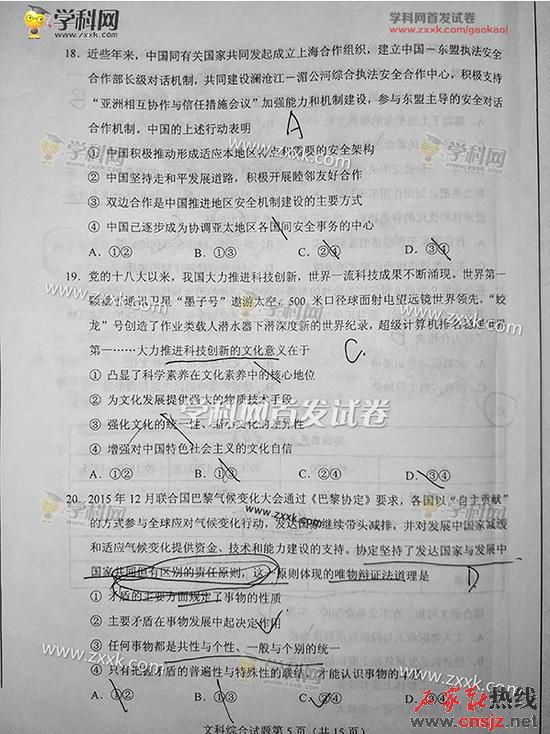 学科网
学科网首发试卷
www.zxxk.com/gaokao/
18. 近些年来,中国同有关国家共同发起成立上海合作组织,建立中国-东盟执法安全
合作部长级对话机制,共同建设澜沧江-湄公河综合执法安全合作中心,积极支持
“亚洲相互协作与信任措施会议”加强能力和机制建设,参与东盟主导的安全对话
合作机制。中国的上述行动表明
A
① 中国积极推动形成适应本地区特点和需要的安全架构
② 中国坚持走和平发展道路,积极开展睦邻友好合作
③ 双边合作是中国推进地区安全机制建设的主要方式
④ 中国已逐步成为协调亚太地区各国间安全事务的中心
A. ①② B. ①③ C. ②④ D. ③④
19. 党的十八大以来,我国大力推进科技创新,世界一流科技成果不断涌现。世界第一
颗量子通讯卫星“墨子号”遨游太空,500 米口径球面射电望远镜世界领先,“蛟
龙”号创造了作业类载人潜水器下潜深度新的世界纪录,超级计算机排名稳居世界
第一……大力推进科技创新的文化意义在于
C.
① 凸显了科学素养在文化素养中的核心地位
② 为文化发展提供强大的物质技术手段
③ 强化文化的统一性、缩小文化的差异性
④ 增强对中国特色社会主义的文化自信
A. ①② B. ①③ C. ②④ D. ③④
20. 2015 年 12 月联合国巴黎气候变化大会通过《巴黎协定》要求,各国以“自主贡献”
的方式参与全球应对气候变化行动,发达国家继续带头减排,并对发展中国家减缓
和适应气候变化提供资金、技术和能力建设的支持。协定坚持了发达国家与发展中
国家共同但有区别的责任原则,这一原则体现的唯物辩证法道理是
D
① 矛盾的主要方面规定了事物的性质
② 主要矛盾在事物发展中起决定作用
③ 任何事物都是共性与个性、一般与个别的统一
④ 只有把握矛盾的普遍性与特殊性的联结,才能认识事物的
A. ①② B. ①③ C. ②④ D. ③④
文科综合试题第 5 页(共 15 页)
学科网
www.zxxk.com
学科网
www.zxxk.com
学科网首发试卷
学科网
www.zxxk.com
石家庄热线
www.cnsjz.net